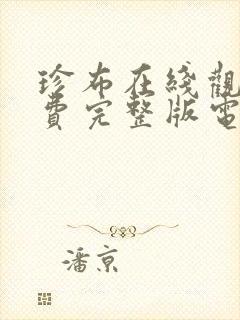 珍布在綫觀
費完整版電
潘京